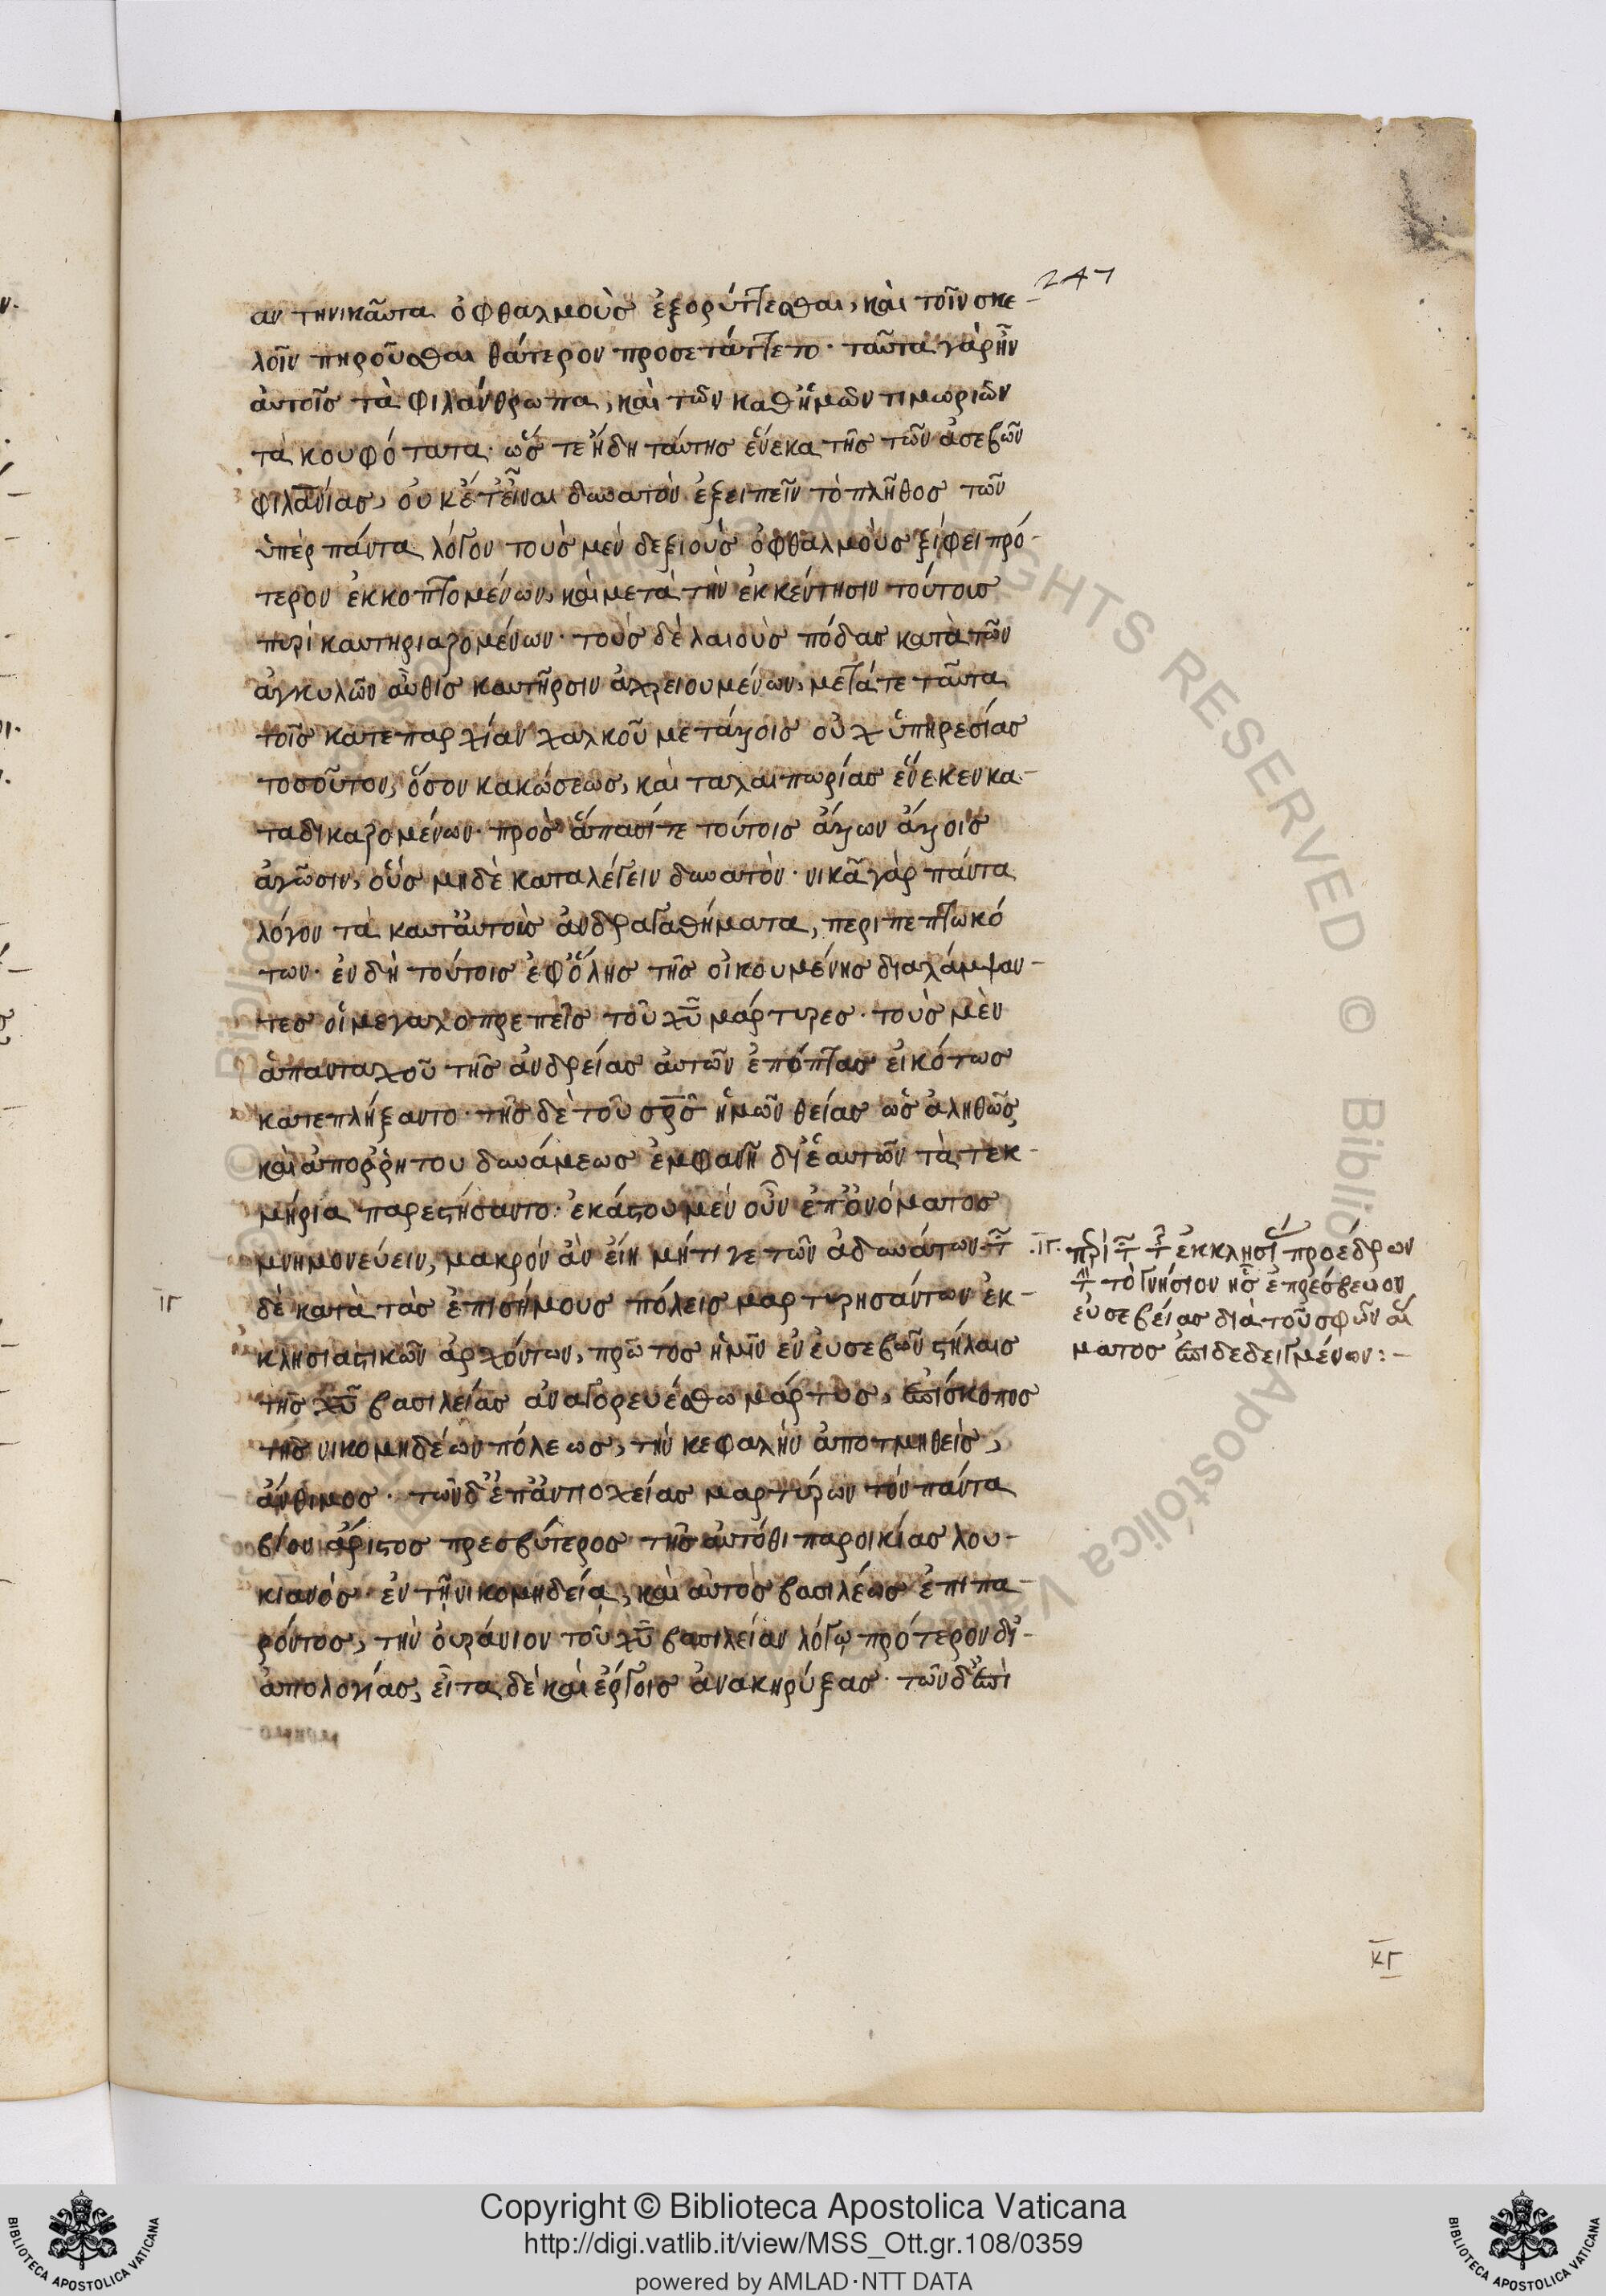 247
αν τηνικαῦτα ὀφθαλμοὺς ἐξορύττεσθαι, καὶ τοῖν σκε-
λοῖν πηροῦσθαι θάτερον προσετάττετο· ταῦτα γὰρ ἦν
αὐτοῖς τὰ φιλάνθρωπα, καὶ τῶν καθ' ἡμῶν τιμωριῶν
τὰ κουφότατα· ὥστε ἤδη ταύτης ἕνεκα τῆς τῶν ἀσεβῶν
φιλανίας, οὐκέτ' εἶναι δυνατὸν ἐξειπεῖν τὸ πλῆθος τῶν
ὑπὲρ πάντα λόγον τοὺς μὲν δεξιοὺς ὀφθαλμοὺς ξίφει πρό-
τερον ἐκκοπτομένων, καὶ μετὰ τὴν ἐκκέντησιν τούτοις
πυρὶ καυτηριαζομένων· τοὺς δὲ λαιοὺς πόδας κατὰ τῶν
ἀγκυλῶν αὖθις καυτῆρσιν ἀχρειουμένων, μετά τε ταῦτα
τοῖς κατ' ἐπαρχίαν χαλκοῦ μετάλλοις οὐχ ὑπηρεσίας
τοσοῦτον, ὅσον κακώσεως, καὶ ταλαιπωρίας ἕνεκεν κα-
ταδικαζομένων· πρὸς ἅπασί τε τούτοις ἄλλων ἄλλοις
ἀγῶσιν, οὓς μηδὲ καταλέγειν δυνατὸν· νικᾶ γὰρ πάντα
λόγον τὰ κατ' αὐτοὺς ἀνδραγαθήματα, περιπεπτωκό
των· ἐν δὴ τούτοις ἐφ' ὅλης τῆς οἰκουμένης διαλάμψαν-
τες οἱ μεγαλοπρεπεῖς τοῦ χῦ μάρτυρες· τοὺς μὲν
ἁπανταχοῦ τῆς ἀνδρείας αὐτῶν ἐπόπτας εἰκότως
κατεπλήξαντο· τῆς δὲ τοῦ σρς ἡμῶν θείας ὡς ἀληθῶς
καὶ ἀπορρήτου δυνάμεως ἐμφανῆ δι' ἑαυτῶν τὰ τεκ-
μήρια παρεστήσαντο· ἑκάστου μὲν οὖν ἐπ' ὀνόματος
μνημονεύειν, μακρὸν ἂν εἴη μήτι γε τῶν ἀδυνάτων· τ
ιγ
δὲ κατὰ τὰς ἐπισήμους πόλεις μαρτυρησάντων ἐκ-
κλησιαστικῶν ἀρχόντων, πρῶτος ἡμῖν ἐν εὐσεβῶν στήλαις
τῆς χῦ βασιλείας ἀναγορευέσθω μάρτυς, ἐπίσκοπος
τῆς νικομηδέων πόλεως, τὴν κεφαλὴν ἀποτμηθεὶς,
ἄνθιμος· τῶν δ' ἐπ' ἀντιοχείας μαρτύρων τὸν πάντα
βίον ἄριστος πρεσβύτερος τῆς αὐτόθι παροικίας λου-
κιανὸς· ἐν τῇ νικομηδεία, καὶ αὐτὸς βασιλέως ἐπιπα-
ρόντος, τὴν οὐράνιον τοῦ χῦ βασιλείαν λόγῳ πρότερον δι'-
ἀπολογίας, εἶτα δὲ καὶ ἔργοις ἀνακηρύξας· τῶν δ' ἐπὶ
.ιγ. περὶ τ τ ἐκκλησι προέδρων
τ τὸ γνήσιον ἧς ἐπρέσβευον
εὐσεβείας διὰ τοῦ σφῶν αἵ
ματος ἐπιδεδειγμένων:-
κγ
Copyright © Biblioteca Apostolica Vaticana
http://digi.vatlib.it/view/MSS_Ott.gr.108/0359
powered by AMLAD·NTT DATA
BIBLIOTECA APOSTOLICA VATICANA
BIBLIOTECA APOSTOLICA VATICANA